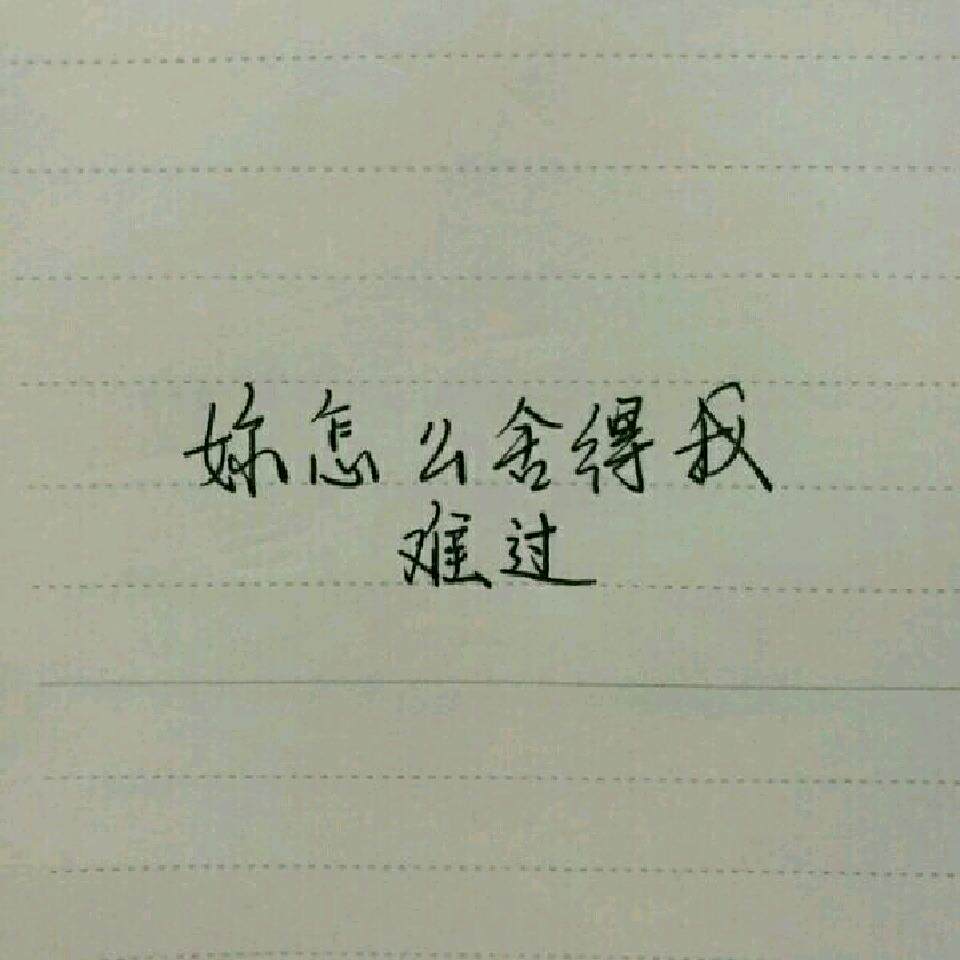 妳怎么舍得我
难过